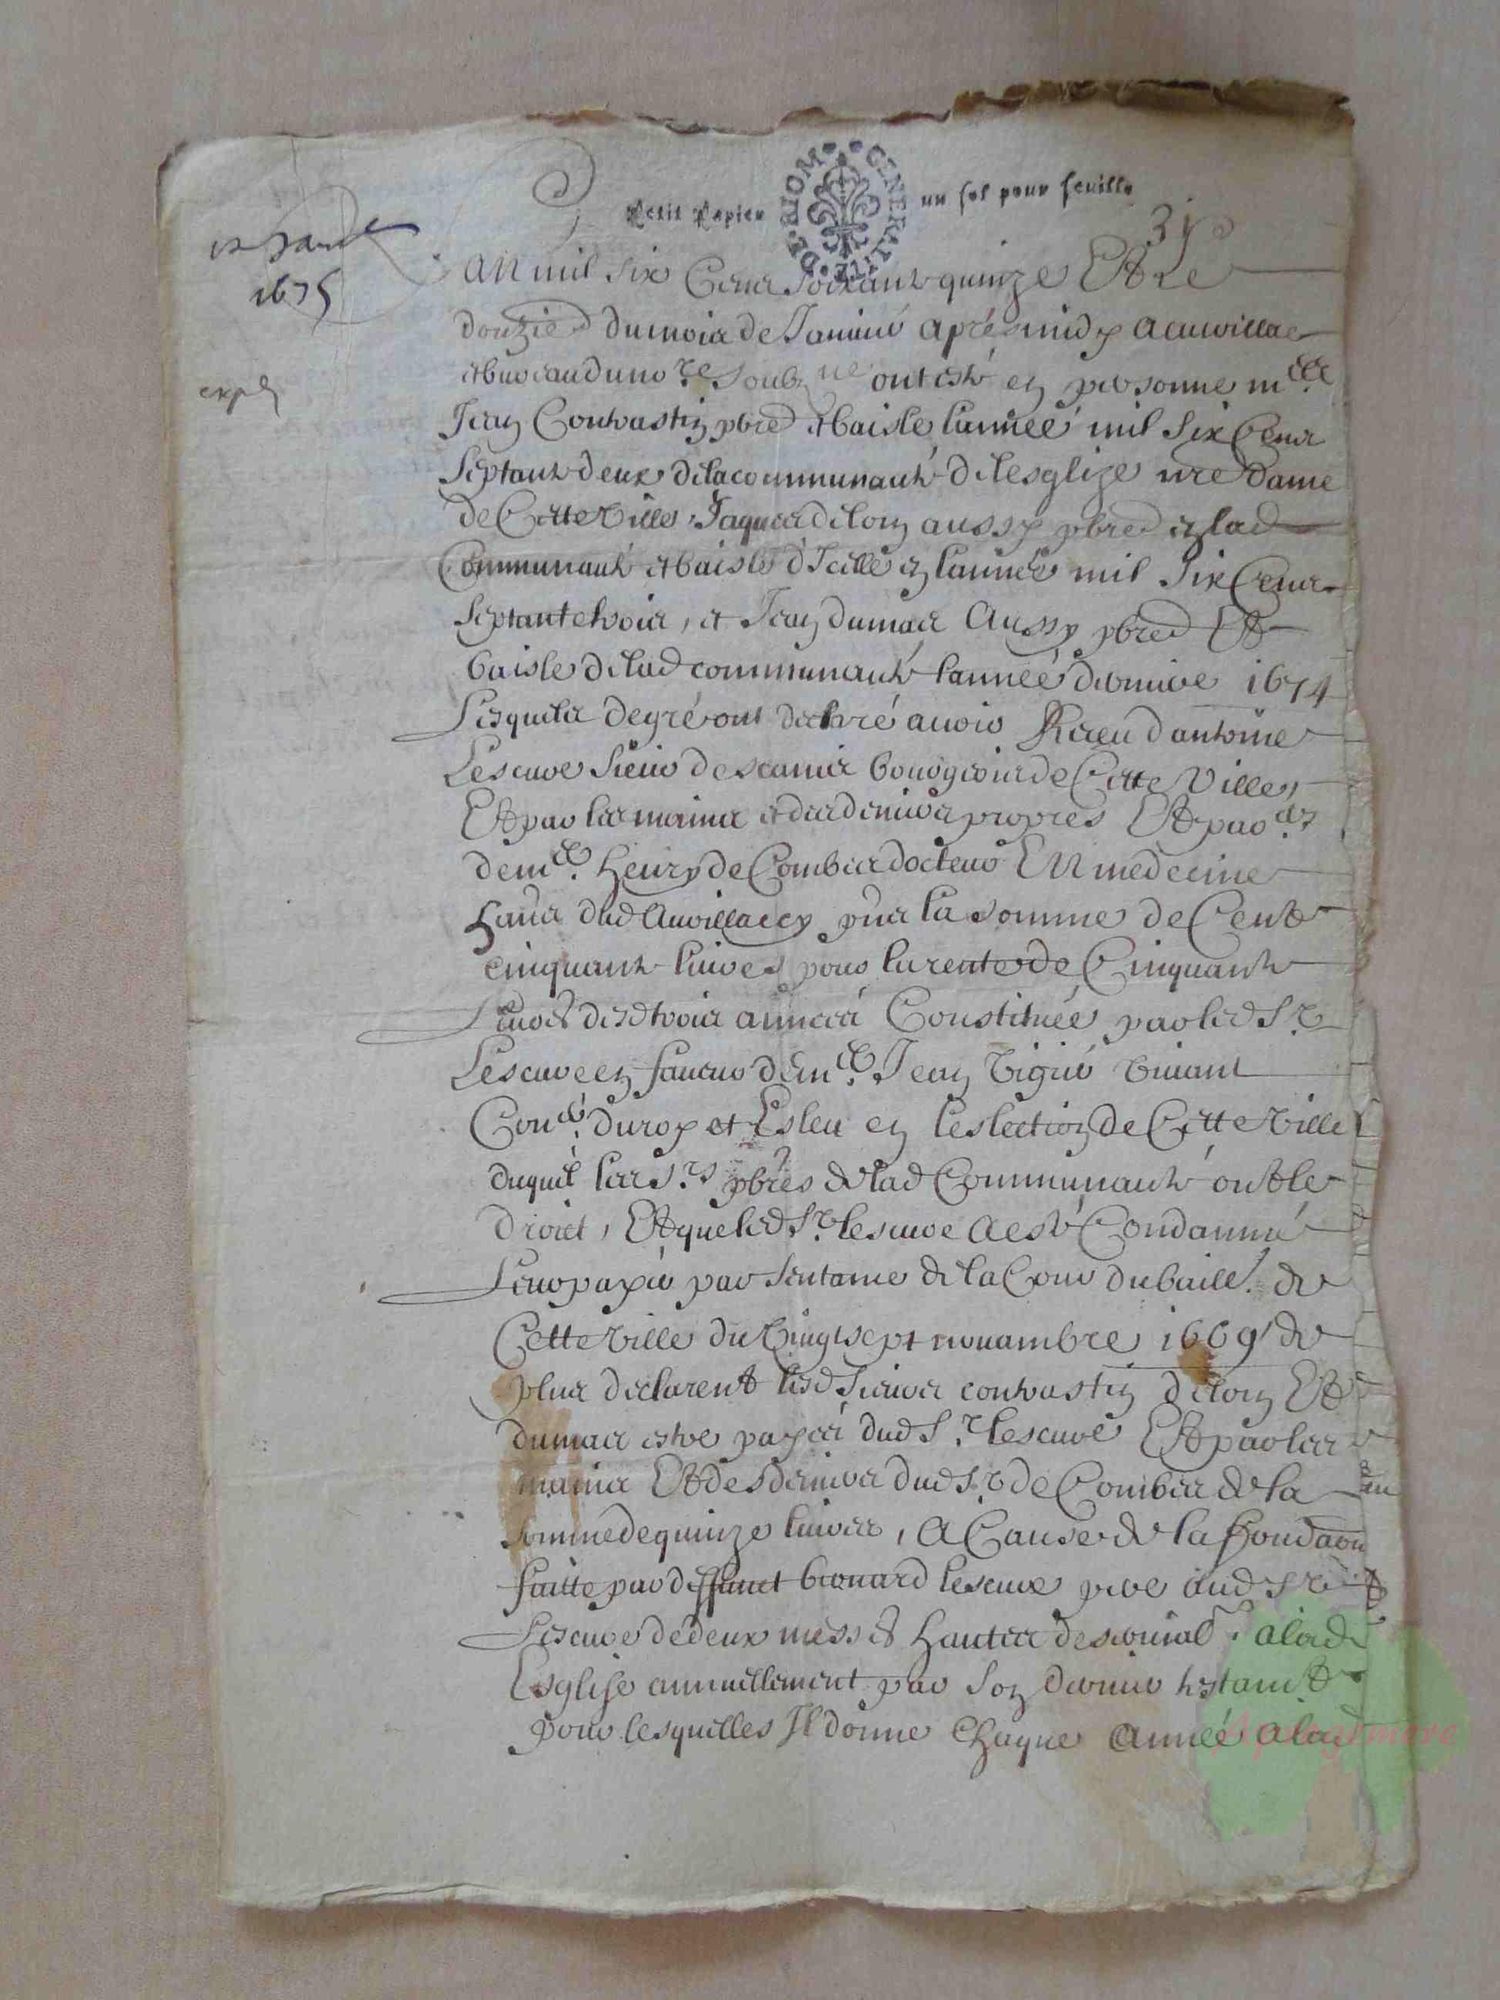 Petit Papier GENERALITE DE RIOM un sol pour feuille
31
12 Janr
1675
exp
An mil six Cens Soixante quinze Et le
douzie du mois de Janvier apres midy a aurillac
et par devant no.re Soubz.ne ont esté en personne m.re
Jean Contrastin pbre et baisle l'année mil Six Cens
Septante deux de la communauté de lesglize nre dame
de Cette Ville, Jaques delom aussy pbre en lad
Communauté et baisle d'Icelle en l'année mil Six Cens
Septante trois, et Jean dumas Aussy pbre Et
baisle de lad communauté l'année derniere 1674
Lesquels de gré ont declaré avoir Receu d'antoine
Lescure Sieur descanis bourgeois de Cette Ville
Et par les mains et des deniers propres Et par
de m.e henry de Combes docteur En medecine
dud Aurillac cy pns la somme de Cent
cinquante livres pour la rente de Cinquante
livres desd trois années Constituée par led S.r
Lescure en faveur de m.e Jean Vigier vivant
Con.er du roy et Esleu en leslection de Cette Ville
duquel les s.rs pbres de lad Communauté ont le
droict, Et que led S.r lescure a esté Condamné
Leur payer par Sentance de la Cour du baill. de
Cette Ville du Vingt sept novambre 1669 de
plus declarent lesd Sieurs contrastin delom Et
dumas estre payés dud S.r lescure Et par les
mains Et des deniers dud S.r de Combes de la
somme de quinze livres, A Cause de la fondaon
faitte par deffunct beonard lescure pere dud S.r
Lescure de deux messes hautes a lad
Esglise annuellement par Son dernier testamt
pour lesquelles Il donne Chaque Année a lad